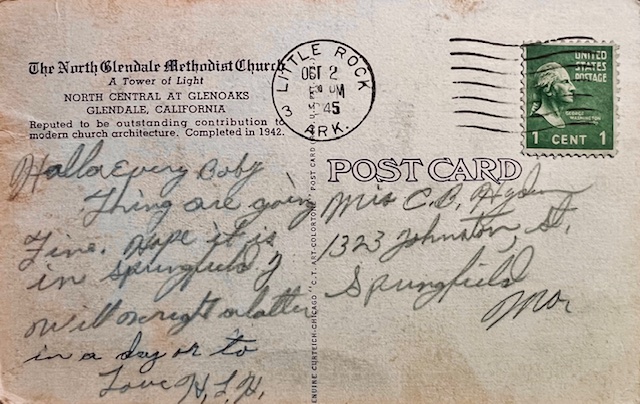 The North Glendale Methodist Church
A Tower of Light
NORTH CENTRAL AT GLENOAKS
GLENDALE, CALIFORNIA
Reputed to be outstanding contribution to
modern church architecture. Completed in 1942.
LITTLE ROCK
OCT 2
M
3
45
ARK.
UNITED
STATES
POSTAGE
GEORGE
WASHINGTON
1 CENT 1
POST CARD
Hallo Every Boby
Thing are going
Fine. Hope it is
in Springfield I
Will wright a latter
in a day or to
Love H. L. H.
Mis C. B.
1323 Johnston, St.
Springfield
Mo
GENUINE CURTEICH-CHICAGO "C.T. ART-COLORTONE" POST CARD